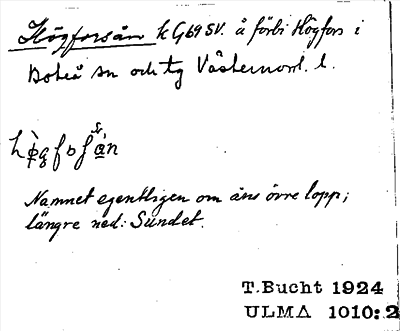 Högforsån k G69SV. å förbi Högfors i
Boteå sn och tg Västernorrl. l.
Namnet egentligen om åns övre lopp;
längre ned: Sundet.
T.Bucht 1924
ULMA 1010:2